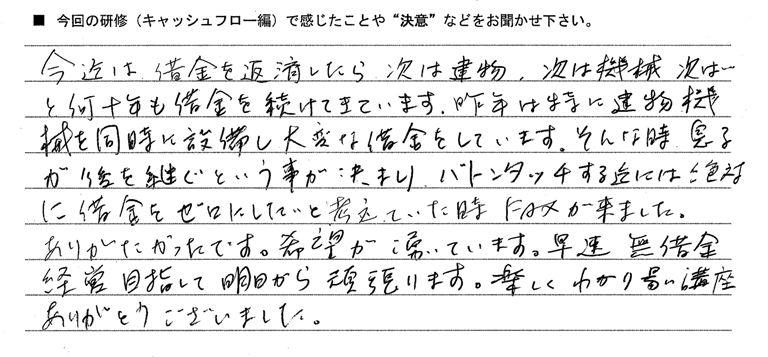 ■ 今回の研修（キャッシュフロー編）で感じたことや“決意”などをお聞かせ下さい。
今迄は 借金を返済したら 次は建物、次は機械 次は…
と何十年も借金を続けてきています。昨年は特に建物機
械を同時に設備し大変な借金をしています。そんな時 息子
が後を継ぐという事が決まり バトンタッチする迄には絶対
に借金をゼロにしたいと考えていた時 FAXが来ました。
ありがたかったです。希望が湧いています。早速 無借金
経営目指して明日から頑張ります。楽しくわかり易い講座
ありがとうございました。